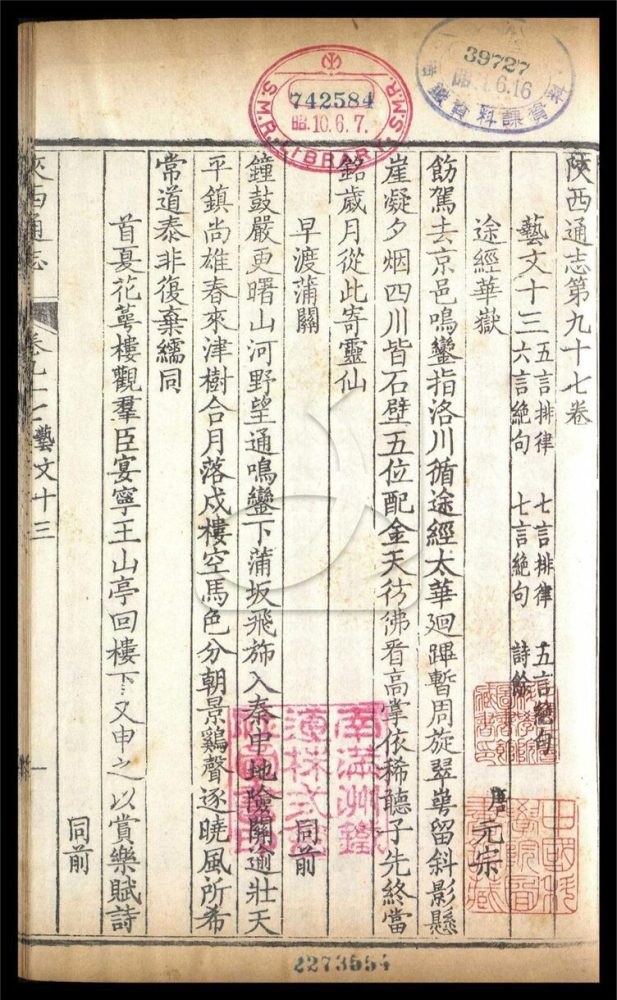 陝西通志第九十七卷
藝文十三 五言排律 七言排律 五言絶句
六言絶句 七言絶句 詩餘
途經華嶽 唐元宗
飭駕去京邑鳴鑾指洛川循途經太華廻蹕暫周旋翠崿留斜影懸
崖凝夕烟四川皆石壁五位配金天彷彿看高掌依稀聽子先終當
銘歲月從此寄靈仙
早渡蒲關 同前
鐘鼓嚴更曙山河野望通鳴鑾下蒲坂飛旆入秦中地險關逾壯天
平鎮尚雄春來津樹合月落戍樓空馬色分朝景鷄聲逐曉風所希
常道泰非復棄繻同
首夏花萼樓觀羣臣宴寧王山亭回樓下又申之以賞樂賦詩
同前
陝西通志
卷九十七 藝文十三
一
742584
昭.10.6.7.
S.M.R. LIBRARY S.M.R.
39727
6.16
南滿洲鐵
道株式會
2273554